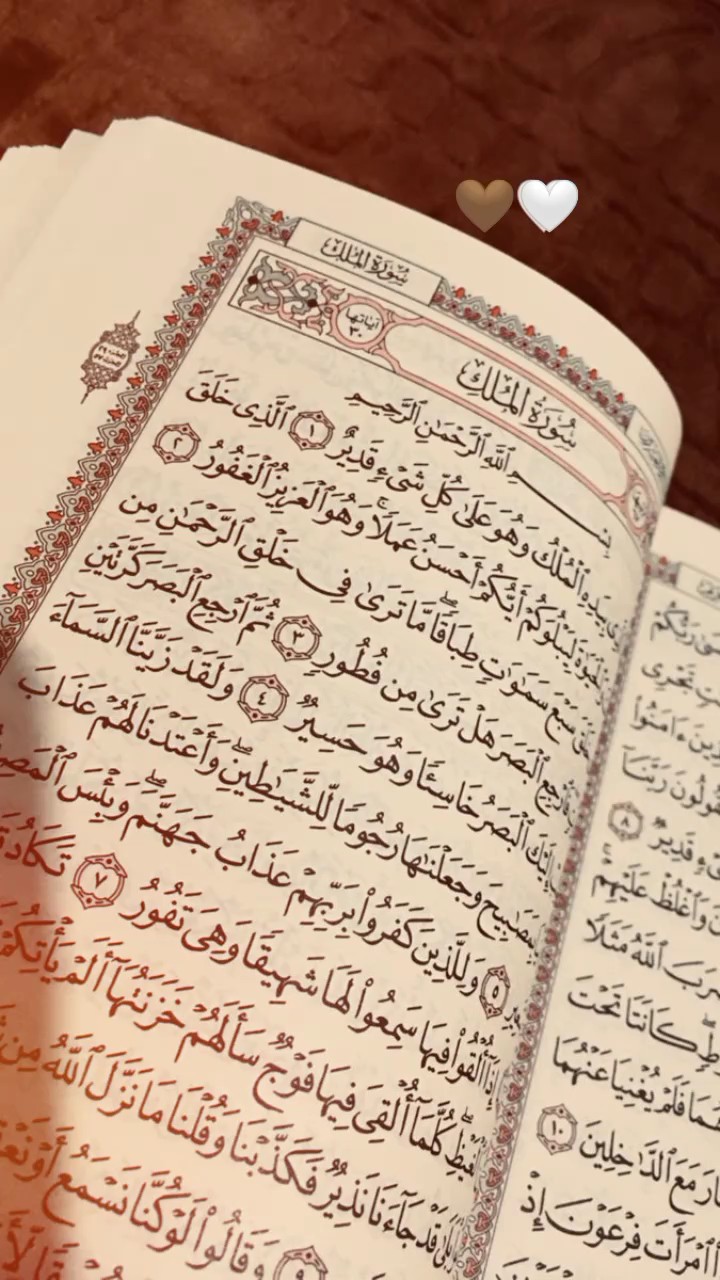 سُورَةُ المُلْكِ
سُورَةُ المُلْكِ
آياتها ٣٠
بِسْمِ ٱللَّهِ ٱلرَّحْمَٰنِ ٱلرَّحِيمِ
بِيَدِهِ ٱلْمُلْكُ وَهُوَ عَلَىٰ كُلِّ شَىْءٍ قَدِيرٌ ١ ٱلَّذِى خَلَقَ
لِيَبْلُوَكُمْ أَيُّكُمْ أَحْسَنُ عَمَلًا ۚ وَهُوَ ٱلْعَزِيزُ ٱلْغَفُورُ ٢
سَبْعَ سَمَٰوَٰتٍ طِبَاقًا ۖ مَّا تَرَىٰ فِى خَلْقِ ٱلرَّحْمَٰنِ مِن
فَٱرْجِعِ ٱلْبَصَرَ هَلْ تَرَىٰ مِن فُطُورٍ ٣ ثُمَّ ٱرْجِعِ ٱلْبَصَرَ كَرَّتَيْنِ
إِلَيْكَ ٱلْبَصَرُ خَاسِئًا وَهُوَ حَسِيرٌ ٤ وَلَقَدْ زَيَّنَّا ٱلسَّمَآءَ
بِمَصَٰبِيحَ وَجَعَلْنَٰهَا رُجُومًا لِّلشَّيَٰطِينِ ۖ وَأَعْتَدْنَا لَهُمْ عَذَابَ
٥ وَلِلَّذِينَ كَفَرُوا۟ بِرَبِّهِمْ عَذَابُ جَهَنَّمَ ۖ وَبِئْسَ
إِذَآ أُلْقُوا۟ فِيهَا سَمِعُوا۟ لَهَا شَهِيقًا وَهِىَ تَفُورُ ٧ تَكَادُ
كُلَّمَآ أُلْقِىَ فِيهَا فَوْجٌ سَأَلَهُمْ خَزَنَتُهَآ أَلَمْ يَأْتِكُمْ
قَدْ جَآءَنَا نَذِيرٌ فَكَذَّبْنَا وَقُلْنَا مَا نَزَّلَ ٱللَّهُ مِن
٩ وَقَالُوا۟ لَوْ كُنَّا نَسْمَعُ أَوْ
رَبُّكُمْ
تَجْرِى
ءَامَنُوا۟
رَبَّنَآ
قَدِيرٌ ٨
وَٱغْلُظْ عَلَيْهِمْ
ٱللَّهُ مَثَلًا
كَانَتَا تَحْتَ
فَلَمْ يُغْنِيَا عَنْهُمَا
مَعَ ٱلدَّٰخِلِينَ ١٠
ٱمْرَأَتَ فِرْعَوْنَ إِذْ